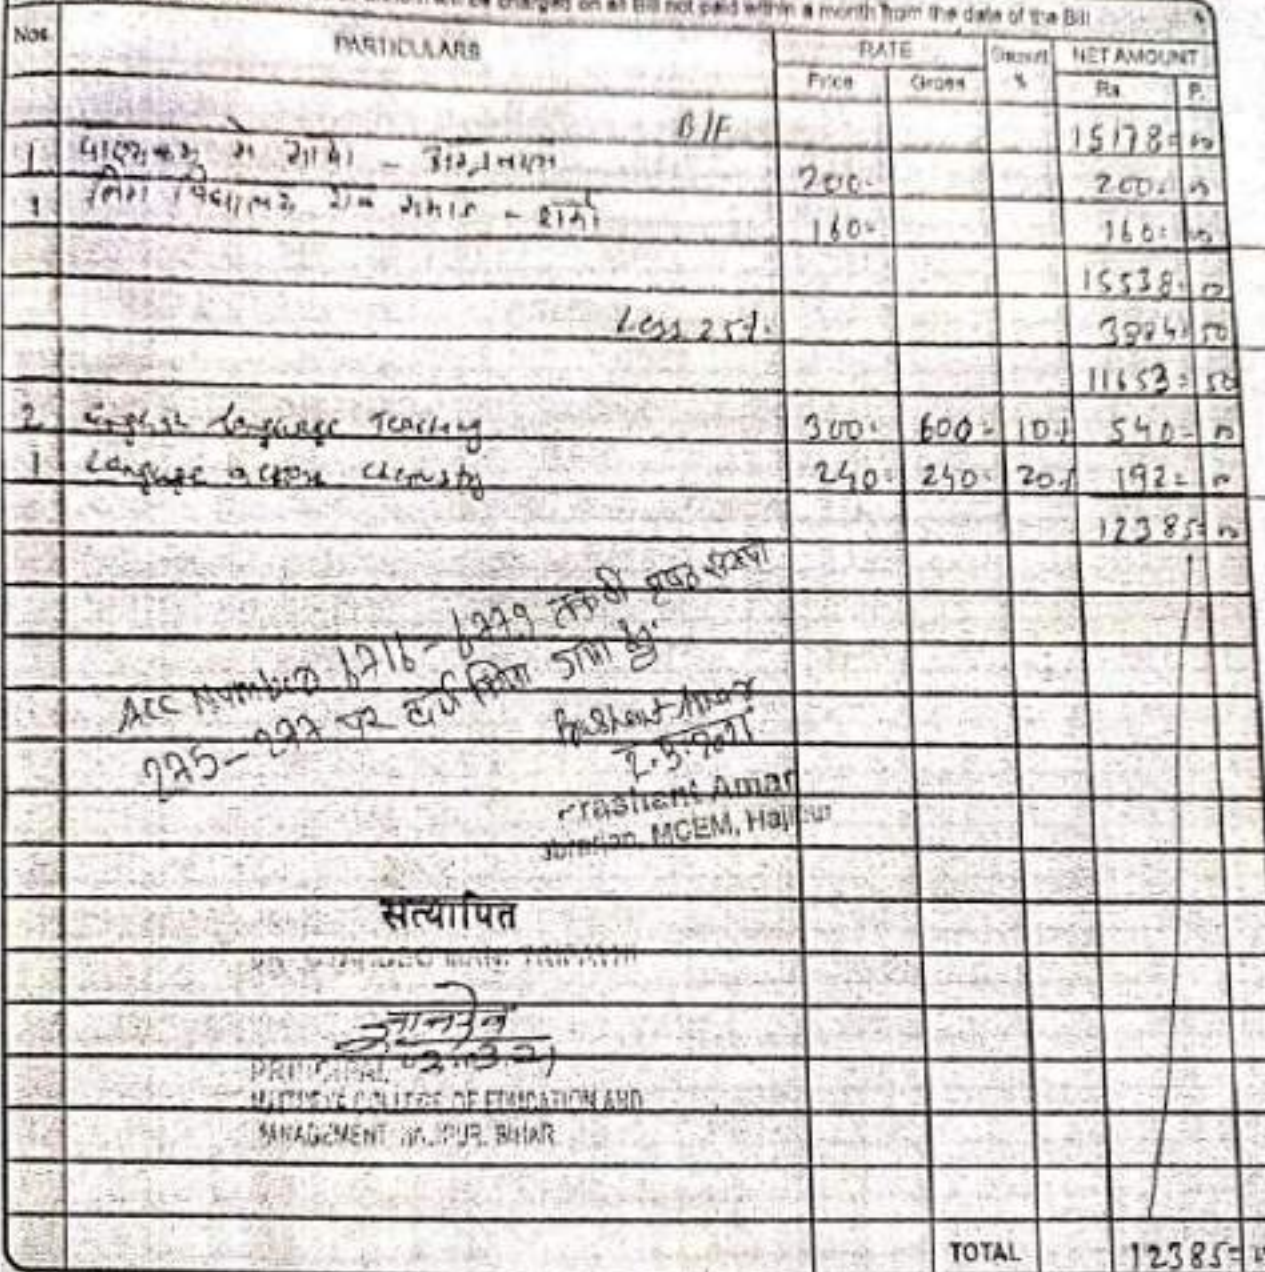 be charged on all Bill not paid within a month from the date of the Bill
Nos. PARTICULARS RATE NET AMOUNT
Price Gross % Rs. P.
B/F 15178=00
1 पाठ्यक्रम में भाषा - 200= 200=00
1 लिंग विद्यालय एवं समाज - शर्मा 160= 160=00
15538=00
Less 25% 3884=50
11653=50
2 English Language Teaching 300= 600= 10% 540=00
1 Language across Chemistry 240= 240= 20% 192=00
12385=00
Acc Number 6216-6279 तक की पृष्ठ संख्या
275-277 पर दर्ज किया गया है।
Prashant Amar
2.3.2021
Prashant Amar
MCEM, Hajipur
सत्यापित
02.03.21
PRINCIPAL
COLLEGE OF EDUCATION AND
MANAGEMENT HAJIPUR, BIHAR
TOTAL 12385=00